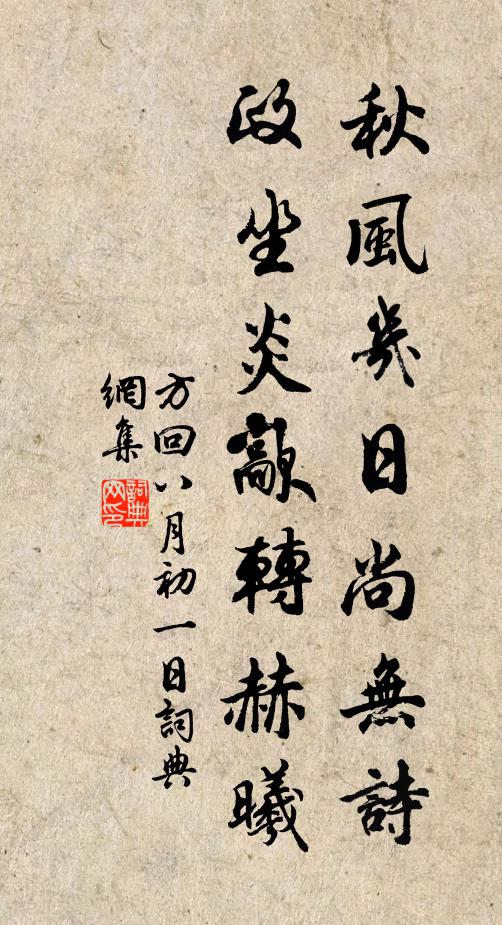 秋風幾日尚無詩
政坐炎歊轉赫曦
方回八月初一日詞典
網集
詞典
网印